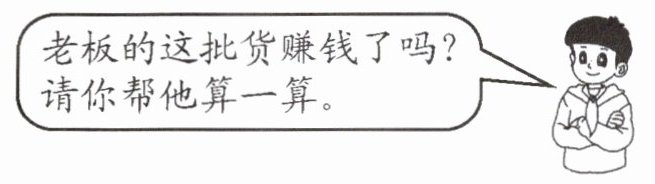 老板的这批货赚钱了吗?
请你帮他算一算。